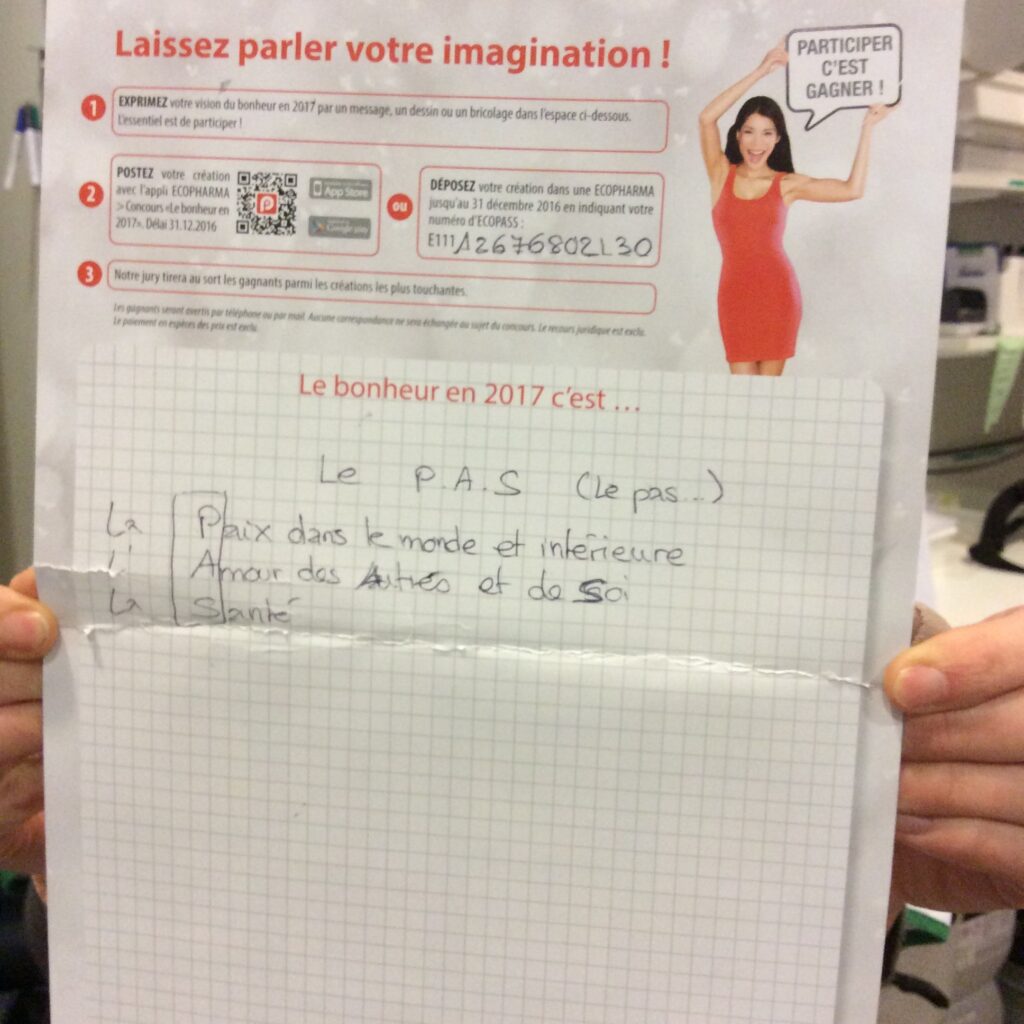 Laissez parler votre imagination !
PARTICIPER
C'EST
GAGNER !
1
EXPRIMEZ votre vision du bonheur en 2017 par un message, un dessin ou un bricolage dans l'espace ci-dessous.
L'essentiel est de participer !
2
POSTEZ votre création
avec l'appli ECOPHARMA
> Concours «Le bonheur en
2017». Délai 31.12.2016
App Store
Google play
OU
DÉPOSEZ votre création dans une ECOPHARMA
jusqu'au 31 décembre 2016 en indiquant votre
numéro d'ECOPASS :
E111 12676802130
3
Notre jury tirera au sort les gagnants parmi les créations les plus touchantes.
Les gagnants seront avertis par téléphone ou par mail. Aucune correspondance ne sera échangée au sujet du concours. Le recours juridique est exclu.
Le paiement en espèces des prix est exclu.
Le bonheur en 2017 c'est ...
Le P.A.S (Le pas...)
La Paix dans le monde et intérieure
L' Amour des Autres et de Soi
La Santé